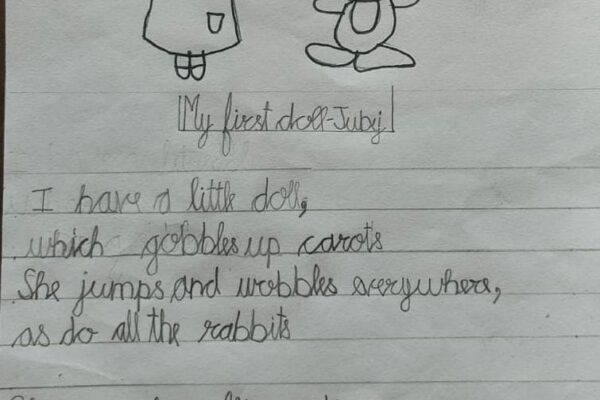 My first doll-Juby
I have a little doll,
which gobbles up carots
She jumps and wobbles everywhere,
as do all the rabbits